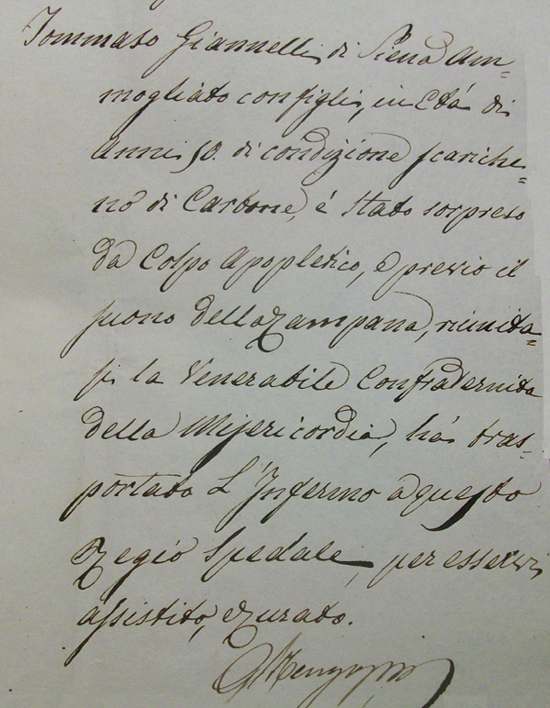 Tommaso Giannelli, di Siena Am=
mogliato con figli, in Età di
Anni 50. di condizione scariche=
no di Carbone, è Stato sorpreso
da Colpo Apopletico, e previo il
suono della Campana, riunita=
si la Venerabile Confraternita
della Misericordia, hà tras=
portato L'Infermo a questo
Regio Spedale, per esservi
assistito, e curato.